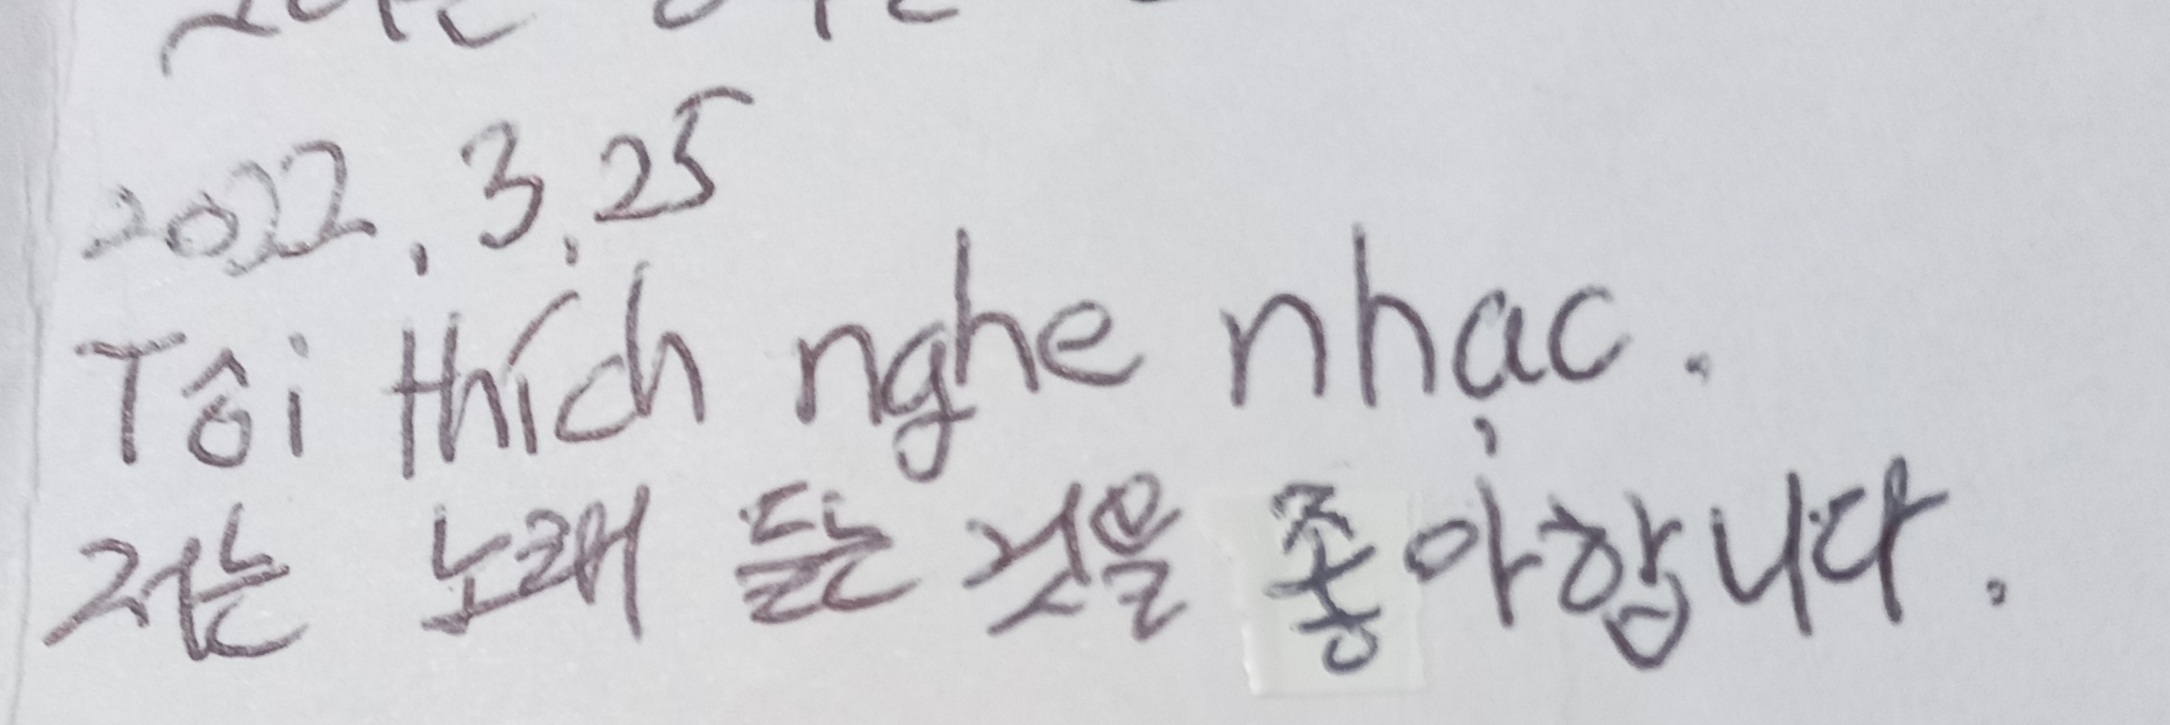 2022.3.25
Tôi thích nghe nhạc.
저는 노래 듣는 것을 좋아합니다.